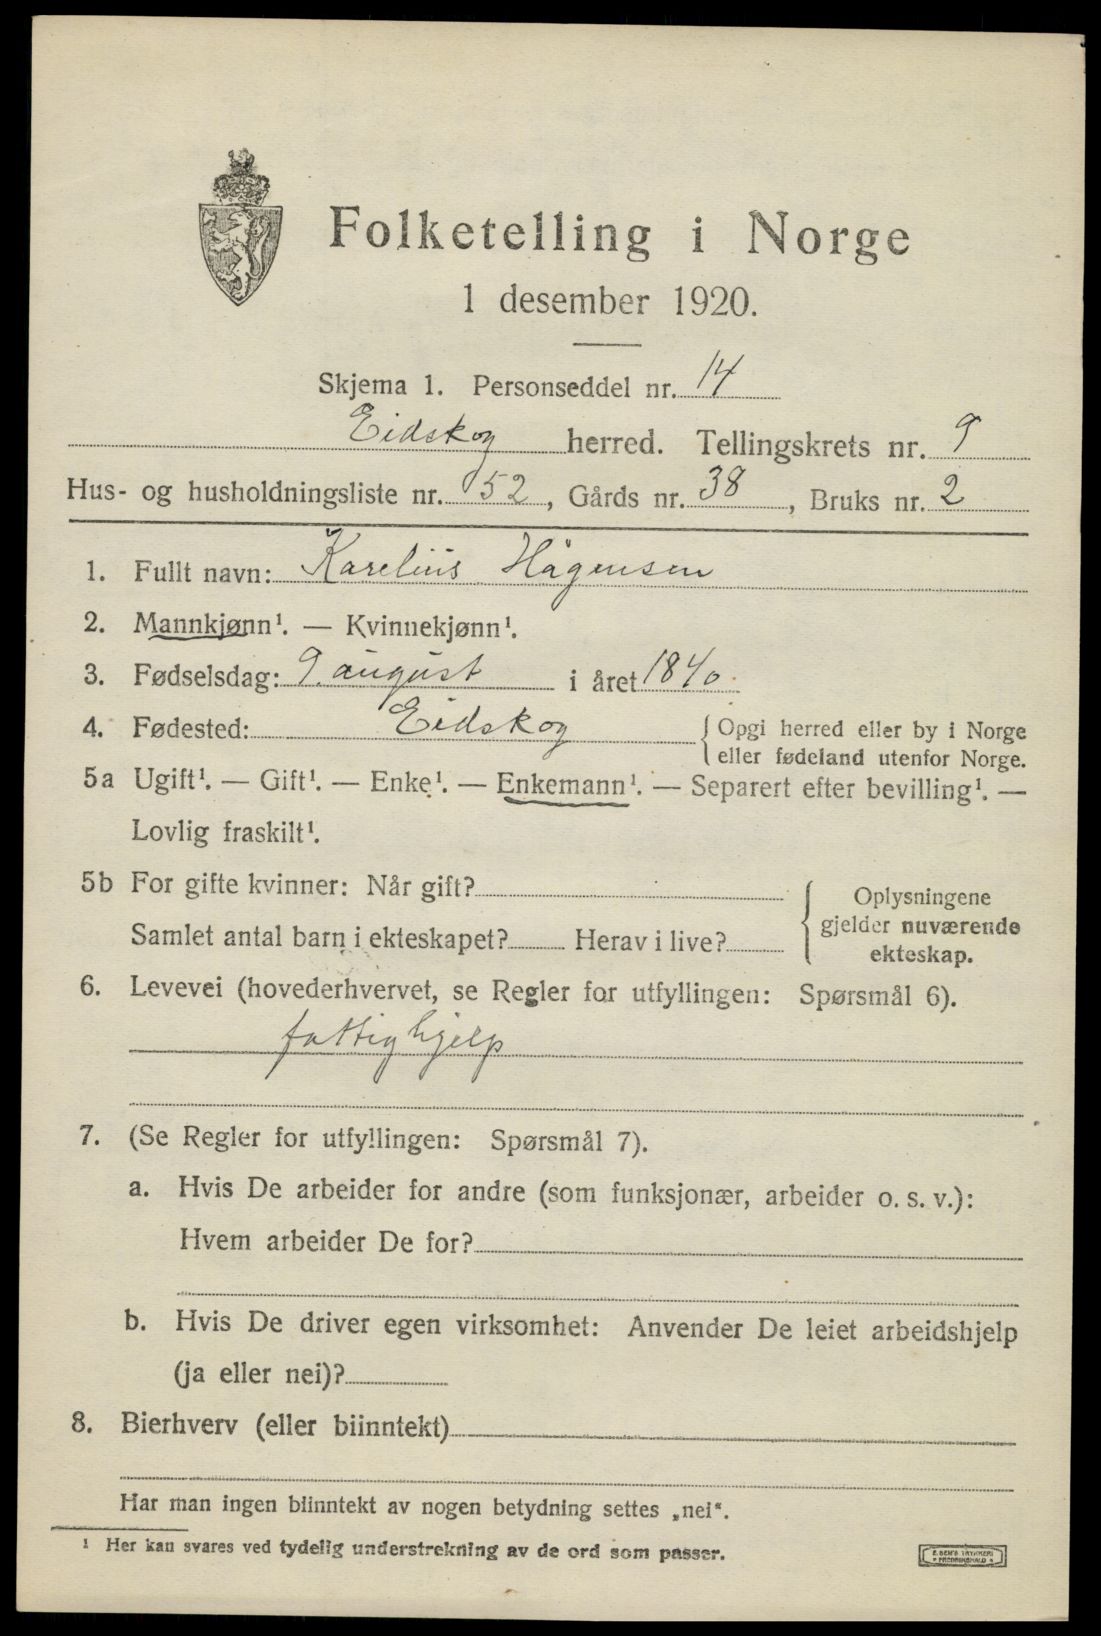 Folketelling i Norge
1 desember 1920.
Skjema 1. Personseddel nr. 14
Eidskog herred. Tellingskrets nr. 9
Hus- og husholdningsliste nr. 52, Gårds nr. 38, Bruks nr. 2
1. Fullt navn: Karelius Hågensen
2. Mannkjønn¹. — Kvinnekjønn¹.
3. Fødselsdag: 9. august i året 1840
4. Fødested: Eidskog { Opgi herred eller by i Norge
eller fødeland utenfor Norge.
5a Ugift¹. — Gift¹. — Enke¹. — Enkemann¹. — Separert efter bevilling¹. —
Lovlig fraskilt¹.
5b For gifte kvinner: Når gift?
Samlet antal barn i ekteskapet? Herav i live?
{ Oplysningene
gjelder nuværende
ekteskap.
6. Levevei (hovederhvervet, se Regler for utfyllingen: Spørsmål 6).
fattighjelp
7. (Se Regler for utfyllingen: Spørsmål 7).
a. Hvis De arbeider for andre (som funksjonær, arbeider o. s. v.):
Hvem arbeider De for?
b. Hvis De driver egen virksomhet: Anvender De leiet arbeidshjelp
(ja eller nei)?
8. Bierhverv (eller biinntekt)
Har man ingen biinntekt av nogen betydning settes „nei“.
¹ Her kan svares ved tydelig understrekning av de ord som passer.
E. SEM'S TRYKKERI
FREDRIKSHALD